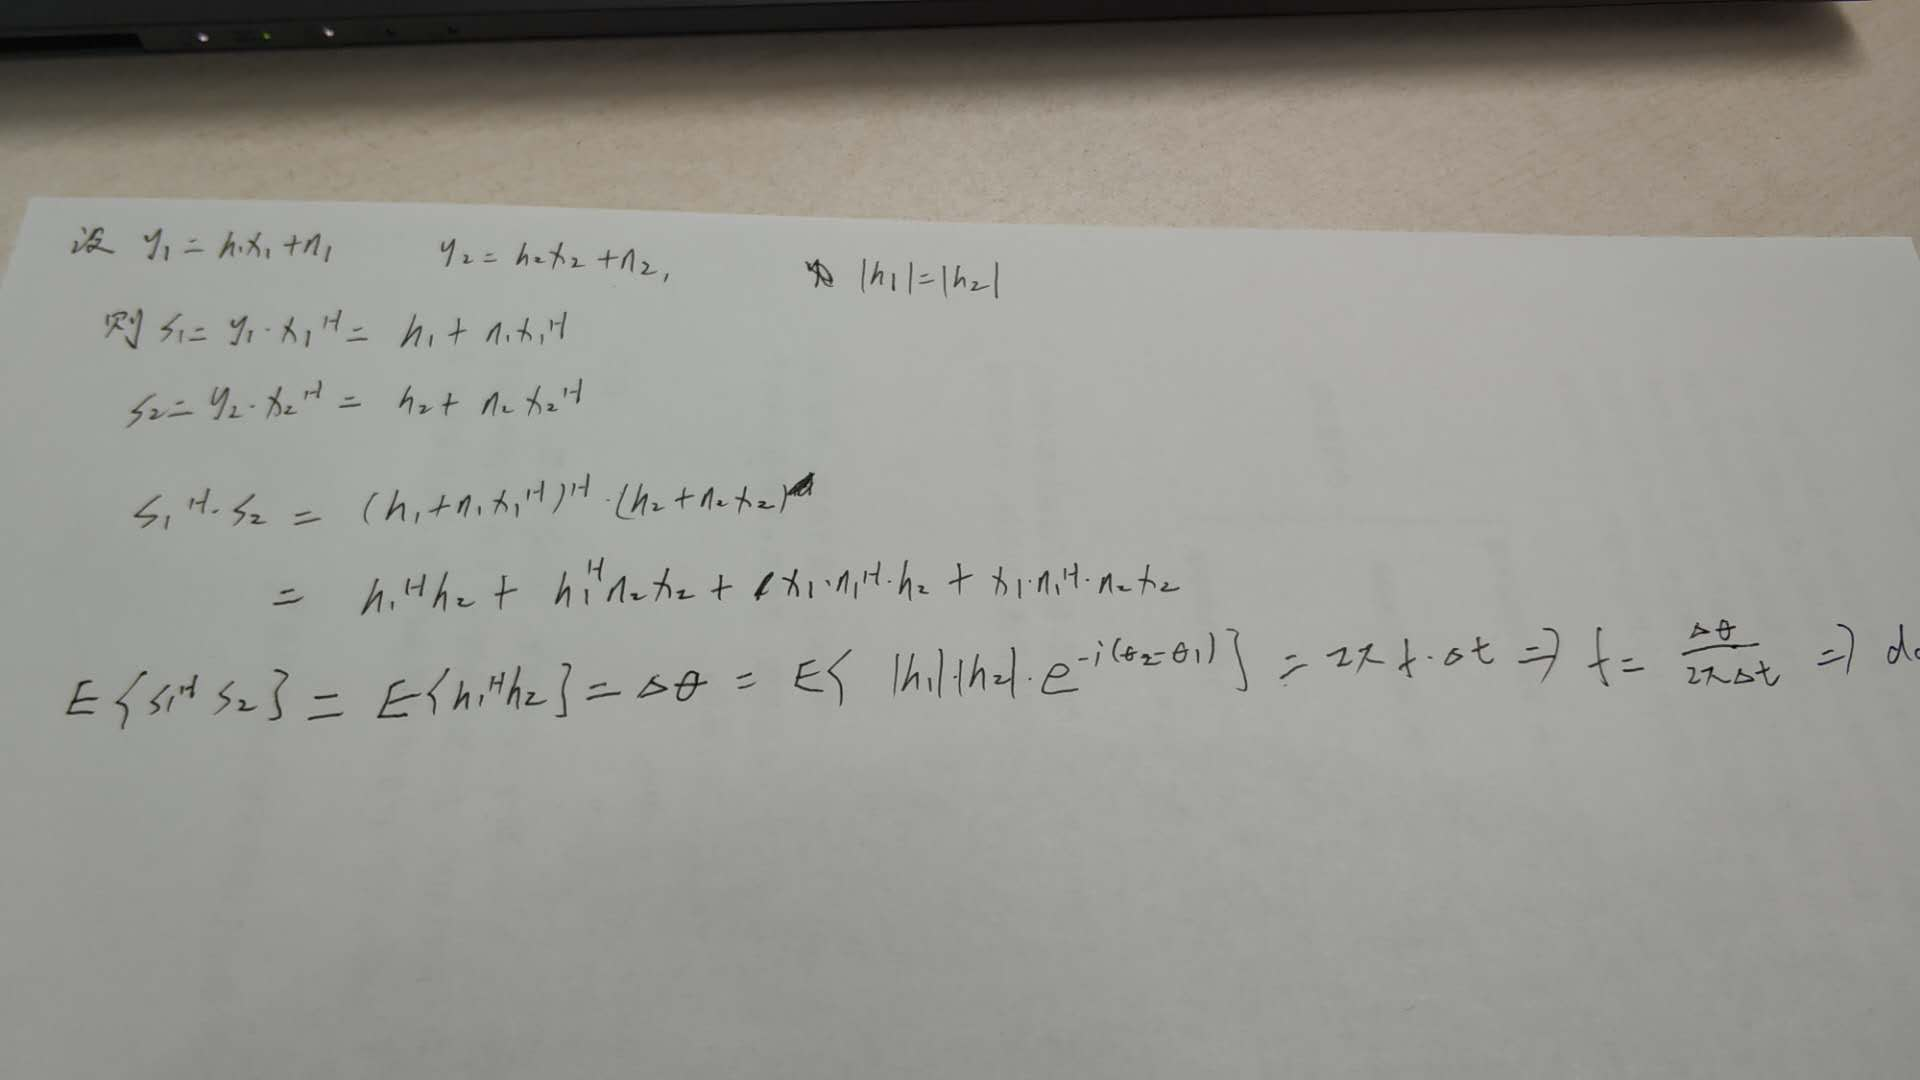 设 y₁ = h₁x₁ + n₁   y₂ = h₂x₂ + n₂,   |h₁| = |h₂|
则 s₁ = y₁·x₁ᴴ = h₁ + n₁x₁ᴴ
s₂ = y₂·x₂ᴴ = h₂ + n₂x₂ᴴ
s₁ᴴ·s₂ = (h₁ + n₁x₁ᴴ)ᴴ·(h₂ + n₂x₂)
= h₁ᴴh₂ + h₁ᴴn₂x₂ + x₁·n₁ᴴ·h₂ + x₁·n₁ᴴ·n₂x₂
E{s₁ᴴs₂} = E{h₁ᴴh₂} = Δθ = E{|h₁|·|h₂|·e^{-i(θ₂-θ₁)}} = 2πf·Δt ⇒ f = Δθ/(2πΔt) ⇒